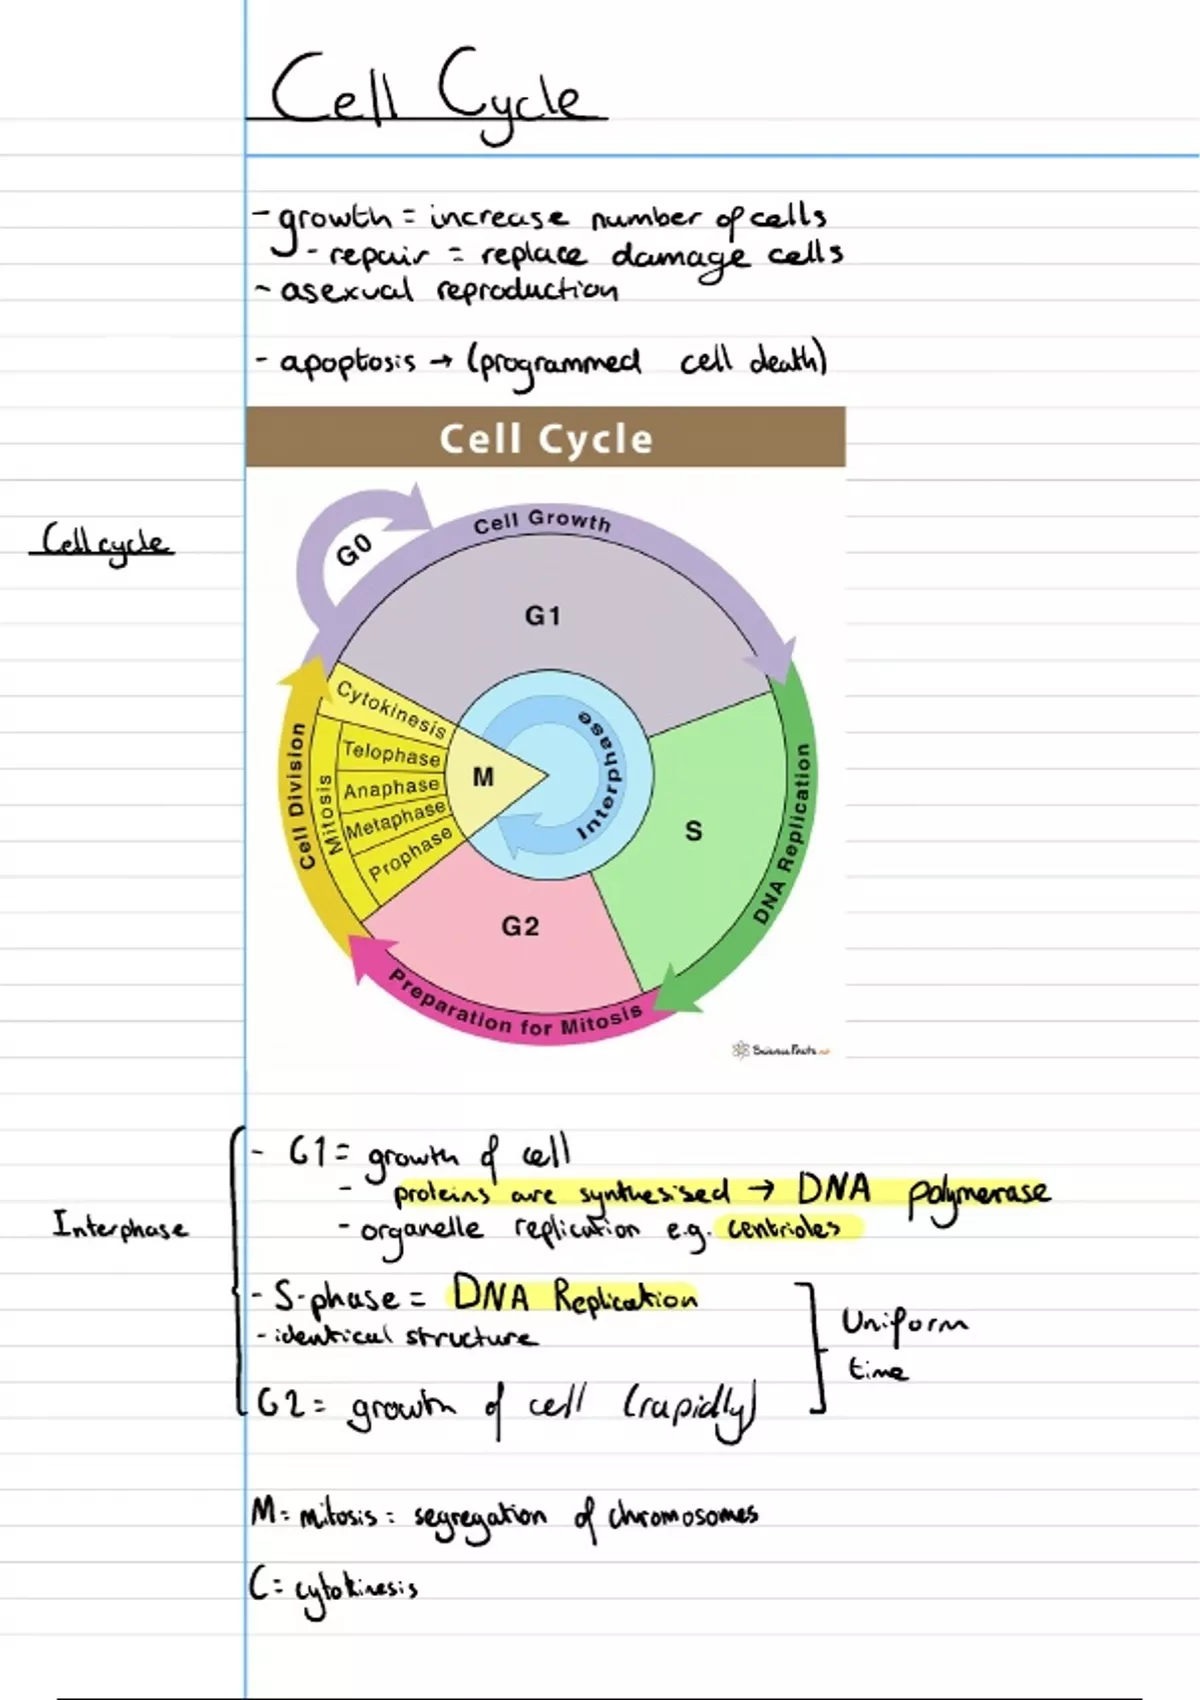 Cell Cycle
- growth = increase number of cells
- repair = replace damage cells
- asexual reproduction
- apoptosis → (programmed cell death)
Cell Cycle
Cell cycle
G0
Cell Growth
G1
Cytokinesis
Telophase
Anaphase
Metaphase
Prophase
Mitosis
Cell Division
M
Interphase
S
DNA Replication
G2
Preparation for Mitosis
ScienceFacts.net
Interphase
- G1 = growth of cell
- proteins are synthesised → DNA polymerase
- organelle replication e.g. centrioles
- S-phase = DNA Replication
- identical structure
Uniform
time
G2 = growth of cell (rapidly)
M = mitosis = segregation of chromosomes
C = cytokinesis